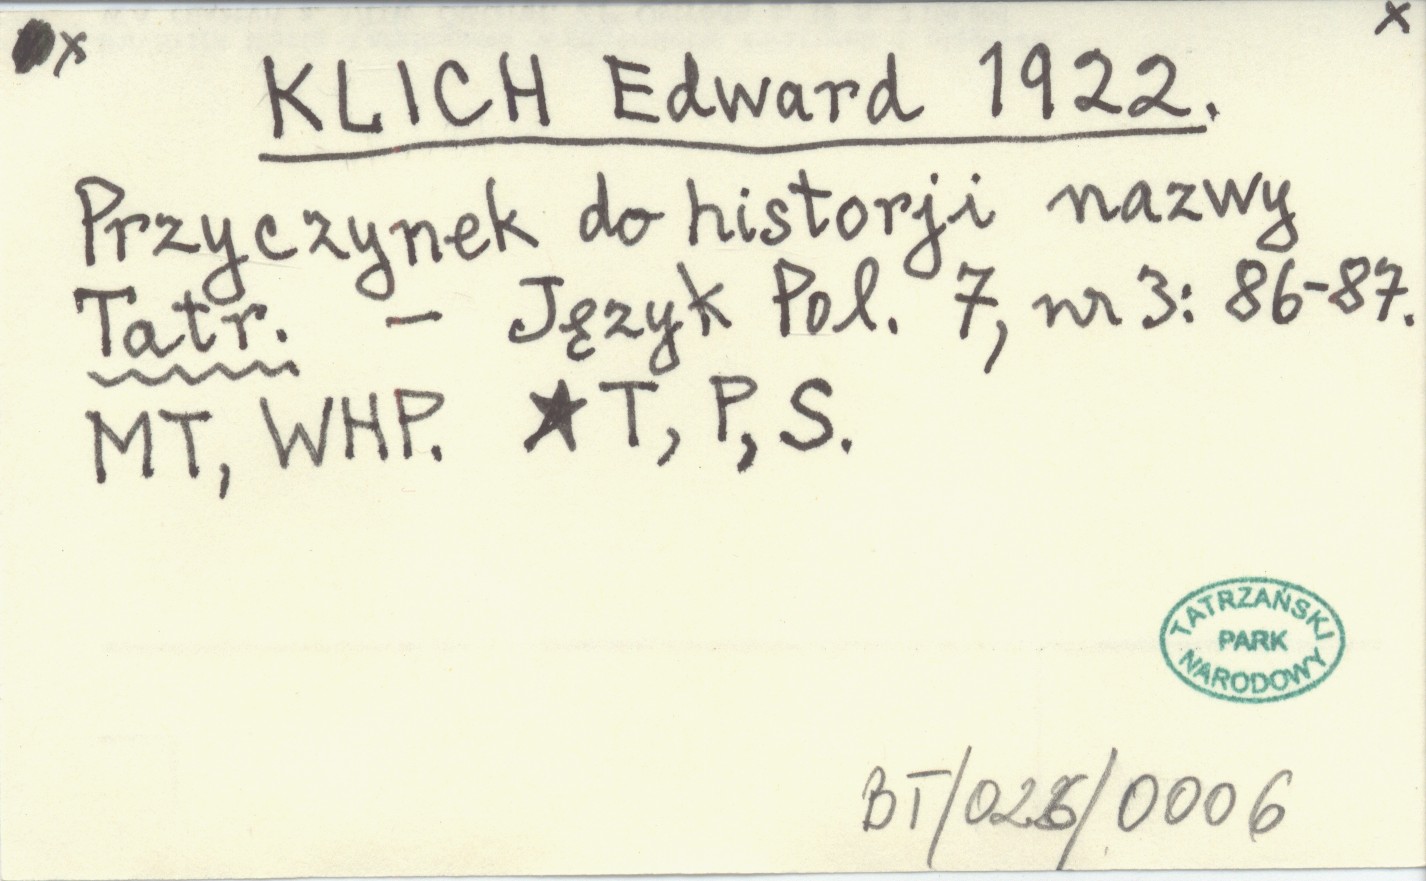 x x
KLICH Edward 1922.
Przyczynek do historji nazwy
Tatr. - Język Pol. 7, nr 3: 86-87.
MT, WHP. ★T, P, S.
TATRZAŃSKI
PARK
NARODOWY
BT/026/0006